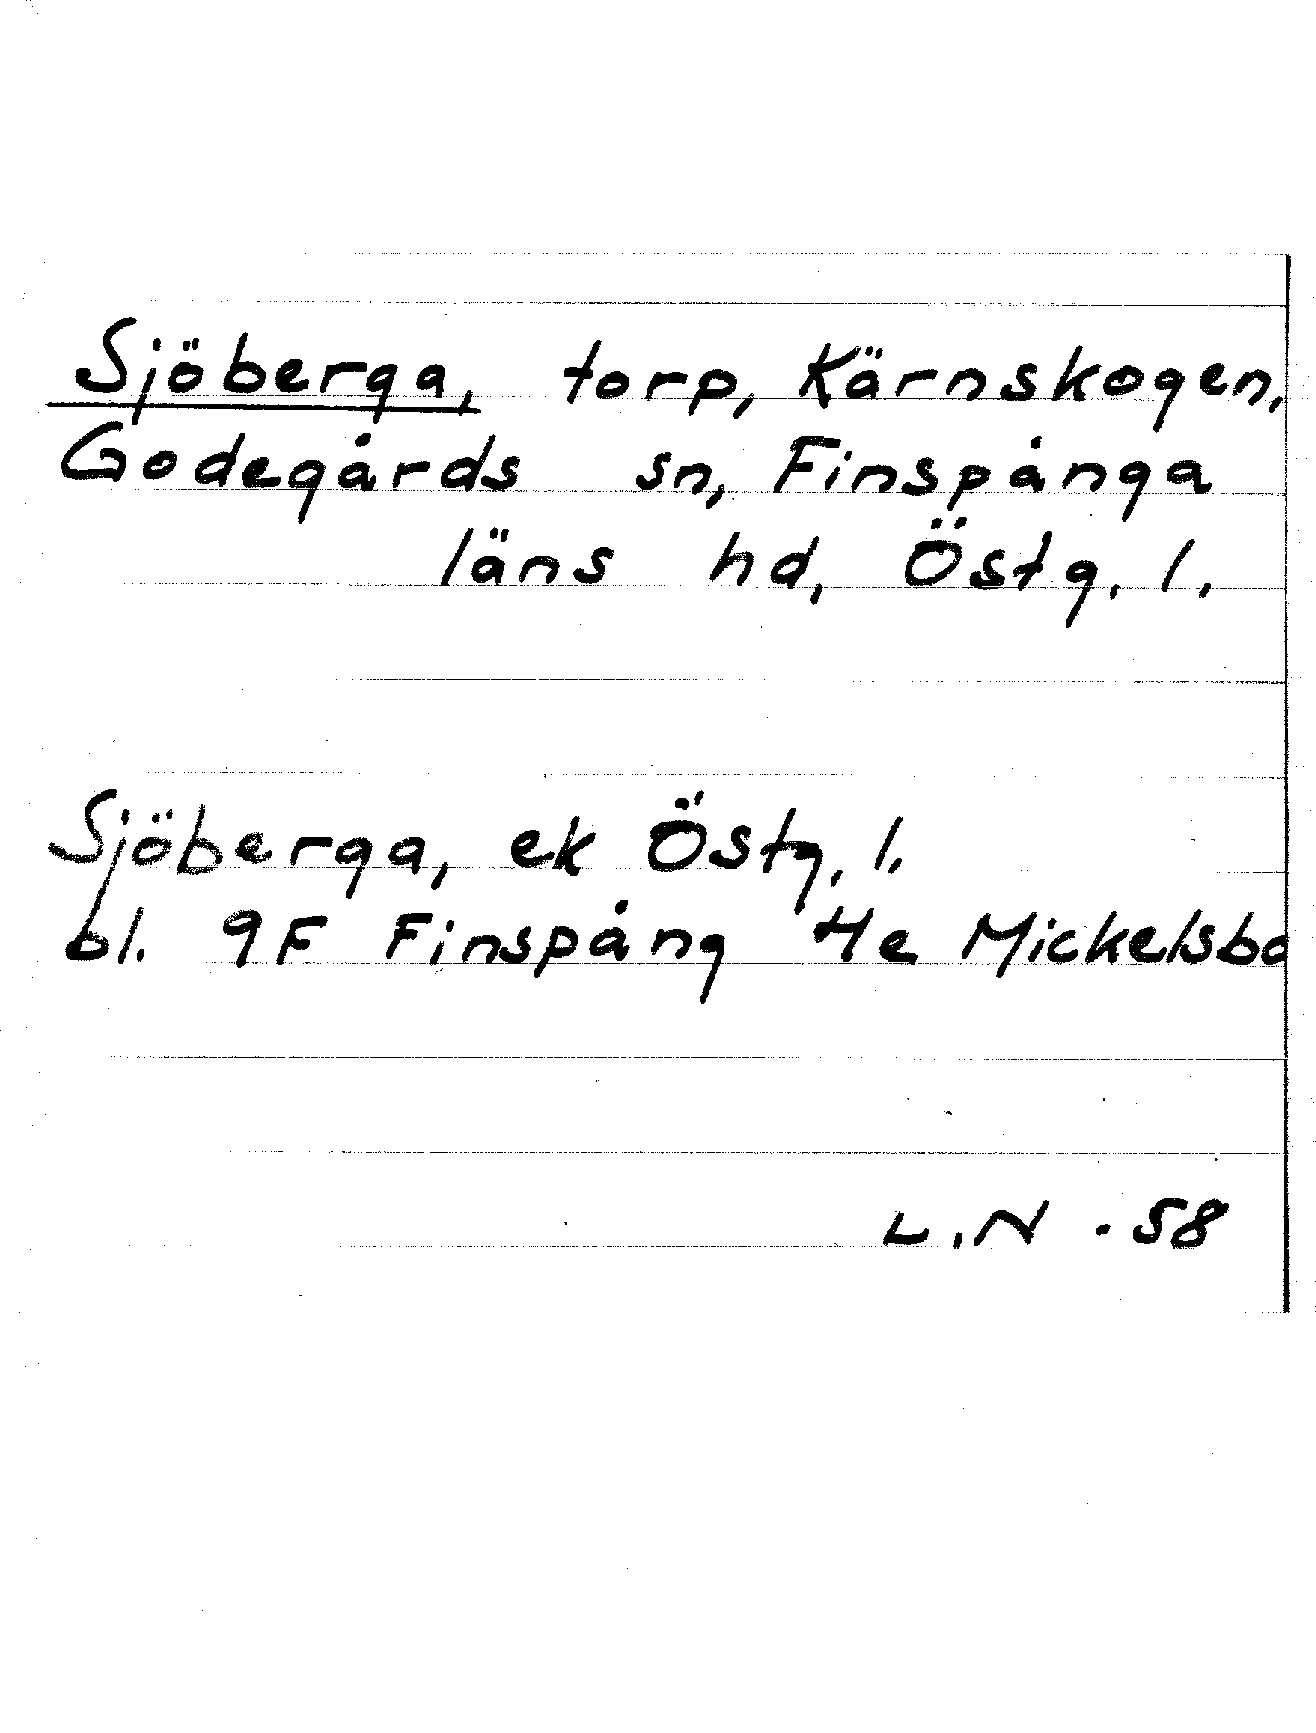 Sjöberga, torp, Kärnskogen,
Godegårds sn, Finspånga
läns hd, Östg. l.
Sjöberga, ek Östg. l.
bl. 9F Finspång 4e Mickelsbo
L.N. 58